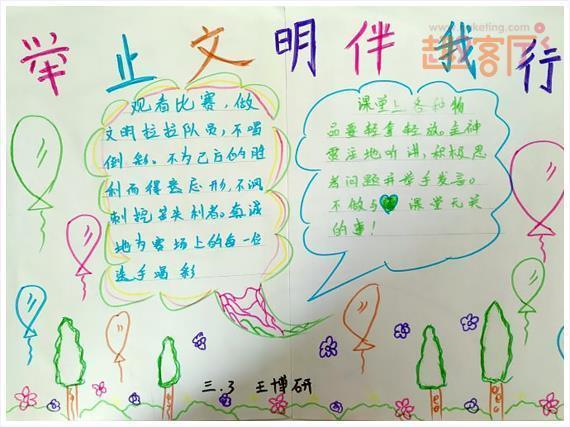 举止文明伴我行
观看比赛，做
文明拉拉队员，不喝
倒彩。不为己方的胜
利而得意忘形，不讽
刺挖苦失利者。真诚
地为赛场上的每一位
选手喝彩
课堂上各种物
品要轻拿轻放。全神
贯注地听讲，积极思
考问题并举手发言。
不做与课堂无关
的事！
三.3 王博研